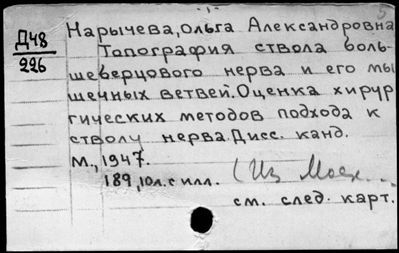 Нарычева, Ольга Александровна
Д48
226
Топография ствола боль-
шеверцового нерва и его мы
шечных ветвей. Оценка хирур
гических методов подхода к
стволу нерва. Дисс. канд.
М., 1947.
189, 10л. с илл.
(Из
см. след. карт.